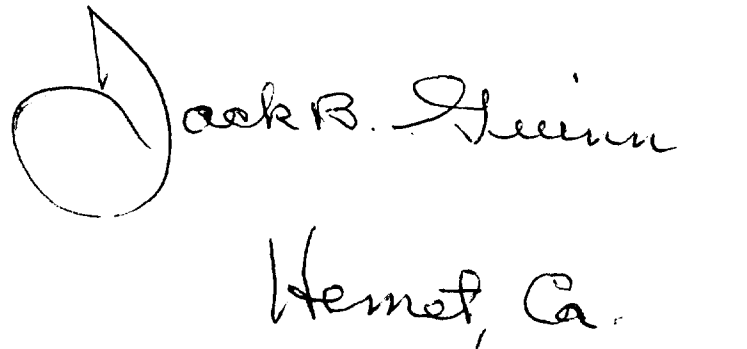 Jack B. Guinn
Hemet, Ca.